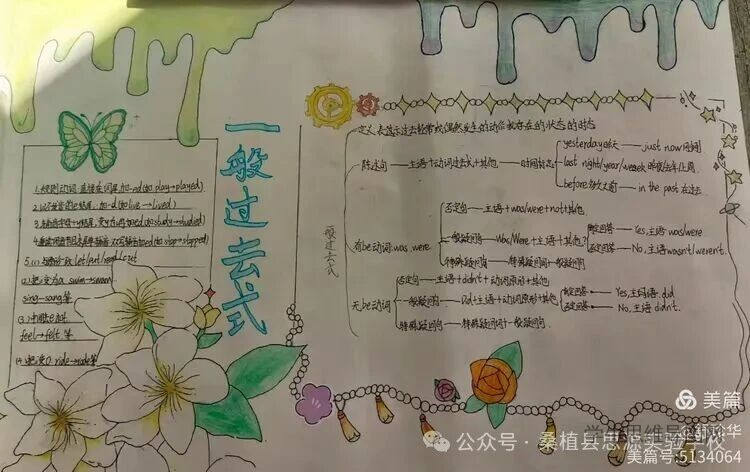 一般过去式
1.规则动词 直接在词尾加-ed(如 play→played)
2.以不发音的e结尾,加-d(如live→lived)
3.辅音字母+y结尾,变y为i再加ed(如study→studied)
加ed(如 stop→stopped)
let/art/read/cost
swim→swam
sing→sang等
feel→felt 等
ride→rode等
一般过去式
定义:表示过去经常或偶然发生的动作或存在的状态的时态
陈述句 主语+动词过去式+其他 时间标志
yesterday昨天 just now刚刚
last night/year/week
before in the past 过去
有be动词:was.were
否定句 主语+was/were+not+其他
一般疑问句 Was/Were+主语+其他?
肯定回答 Yes,主语was/were
否定回答 No,主语wasn't/weren't.
特殊疑问句 特殊疑问词+一般疑问句
无be动词
否定句 主语+didn't+动词原形+其他
一般疑问句 Did+主语+动词原形+其他
肯定回答 Yes,主语 did
否定回答 No,主语 didn't.
特殊疑问句 特殊疑问词+一般疑问句
美篇
公众号·桑植县思源实验学校
美篇号:5134064